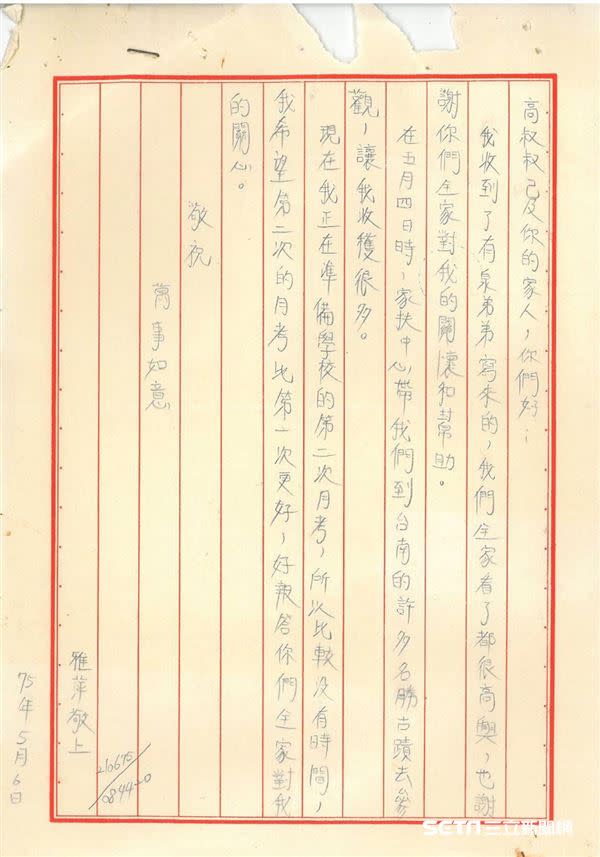 高叔叔己及你的家人，你們好：
我收到了有泉弟弟寫來的，我們全家看了都很高興，也謝
謝你們全家對我的關懷和幫助。
在五月四日時，家扶中心帶我們到台南的許多名勝古蹟去參
觀，讓我收獲很多。
現在我正在準備學校的第二次月考，所以比較沒有時間，
我希望第二次的月考比第一次更好，好報答你們全家對我
的關心。
敬祝
萬事如意
雅萍敬上
210675
0844-0
75年5月6日
SETN三立新聞網